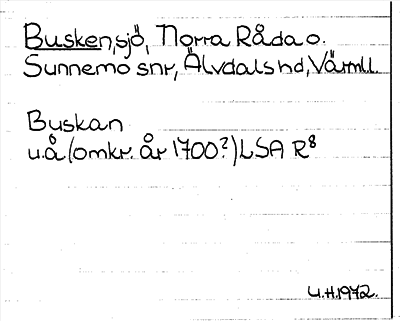 Busken, sjö, Norra Råda o.
Sunnemo snr, Älvdals hd, Värml.
Buskan
u.å (omkr. år 1700?) LSA R8
U.H.1972.